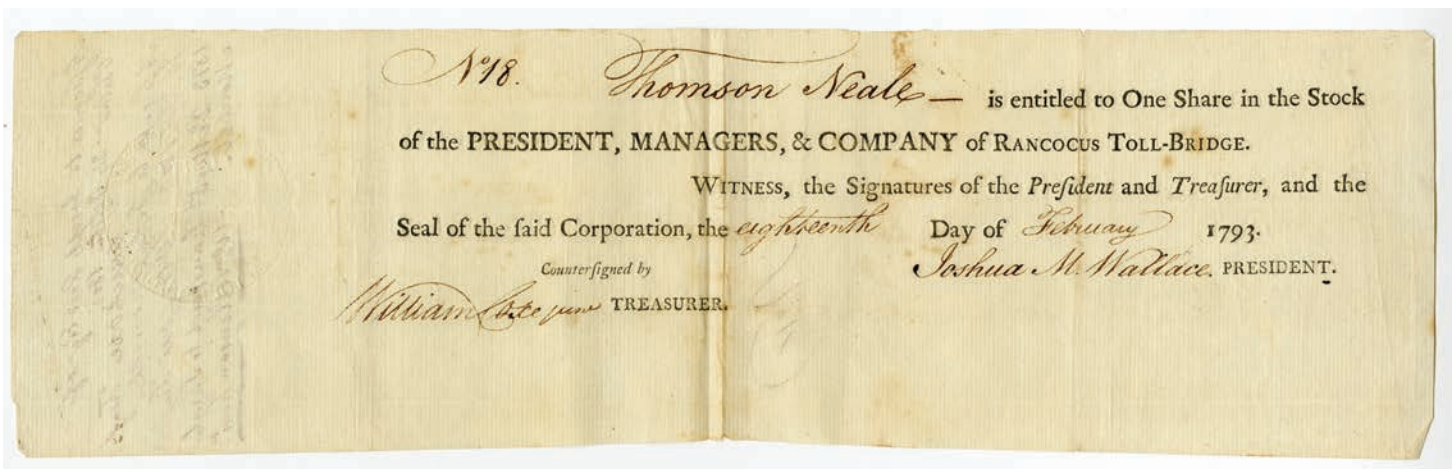 No 18. Thomson Neale — is entitled to One Share in the Stock
of the PRESIDENT, MANAGERS, & COMPANY of RANCOCUS TOLL-BRIDGE.
WITNESS, the Signatures of the Preſident and Treaſurer, and the
Seal of the ſaid Corporation, the eighteenth Day of February 1793.
Counterſigned by Joshua M. Wallace. PRESIDENT.
William Coxe junr TREASURER.